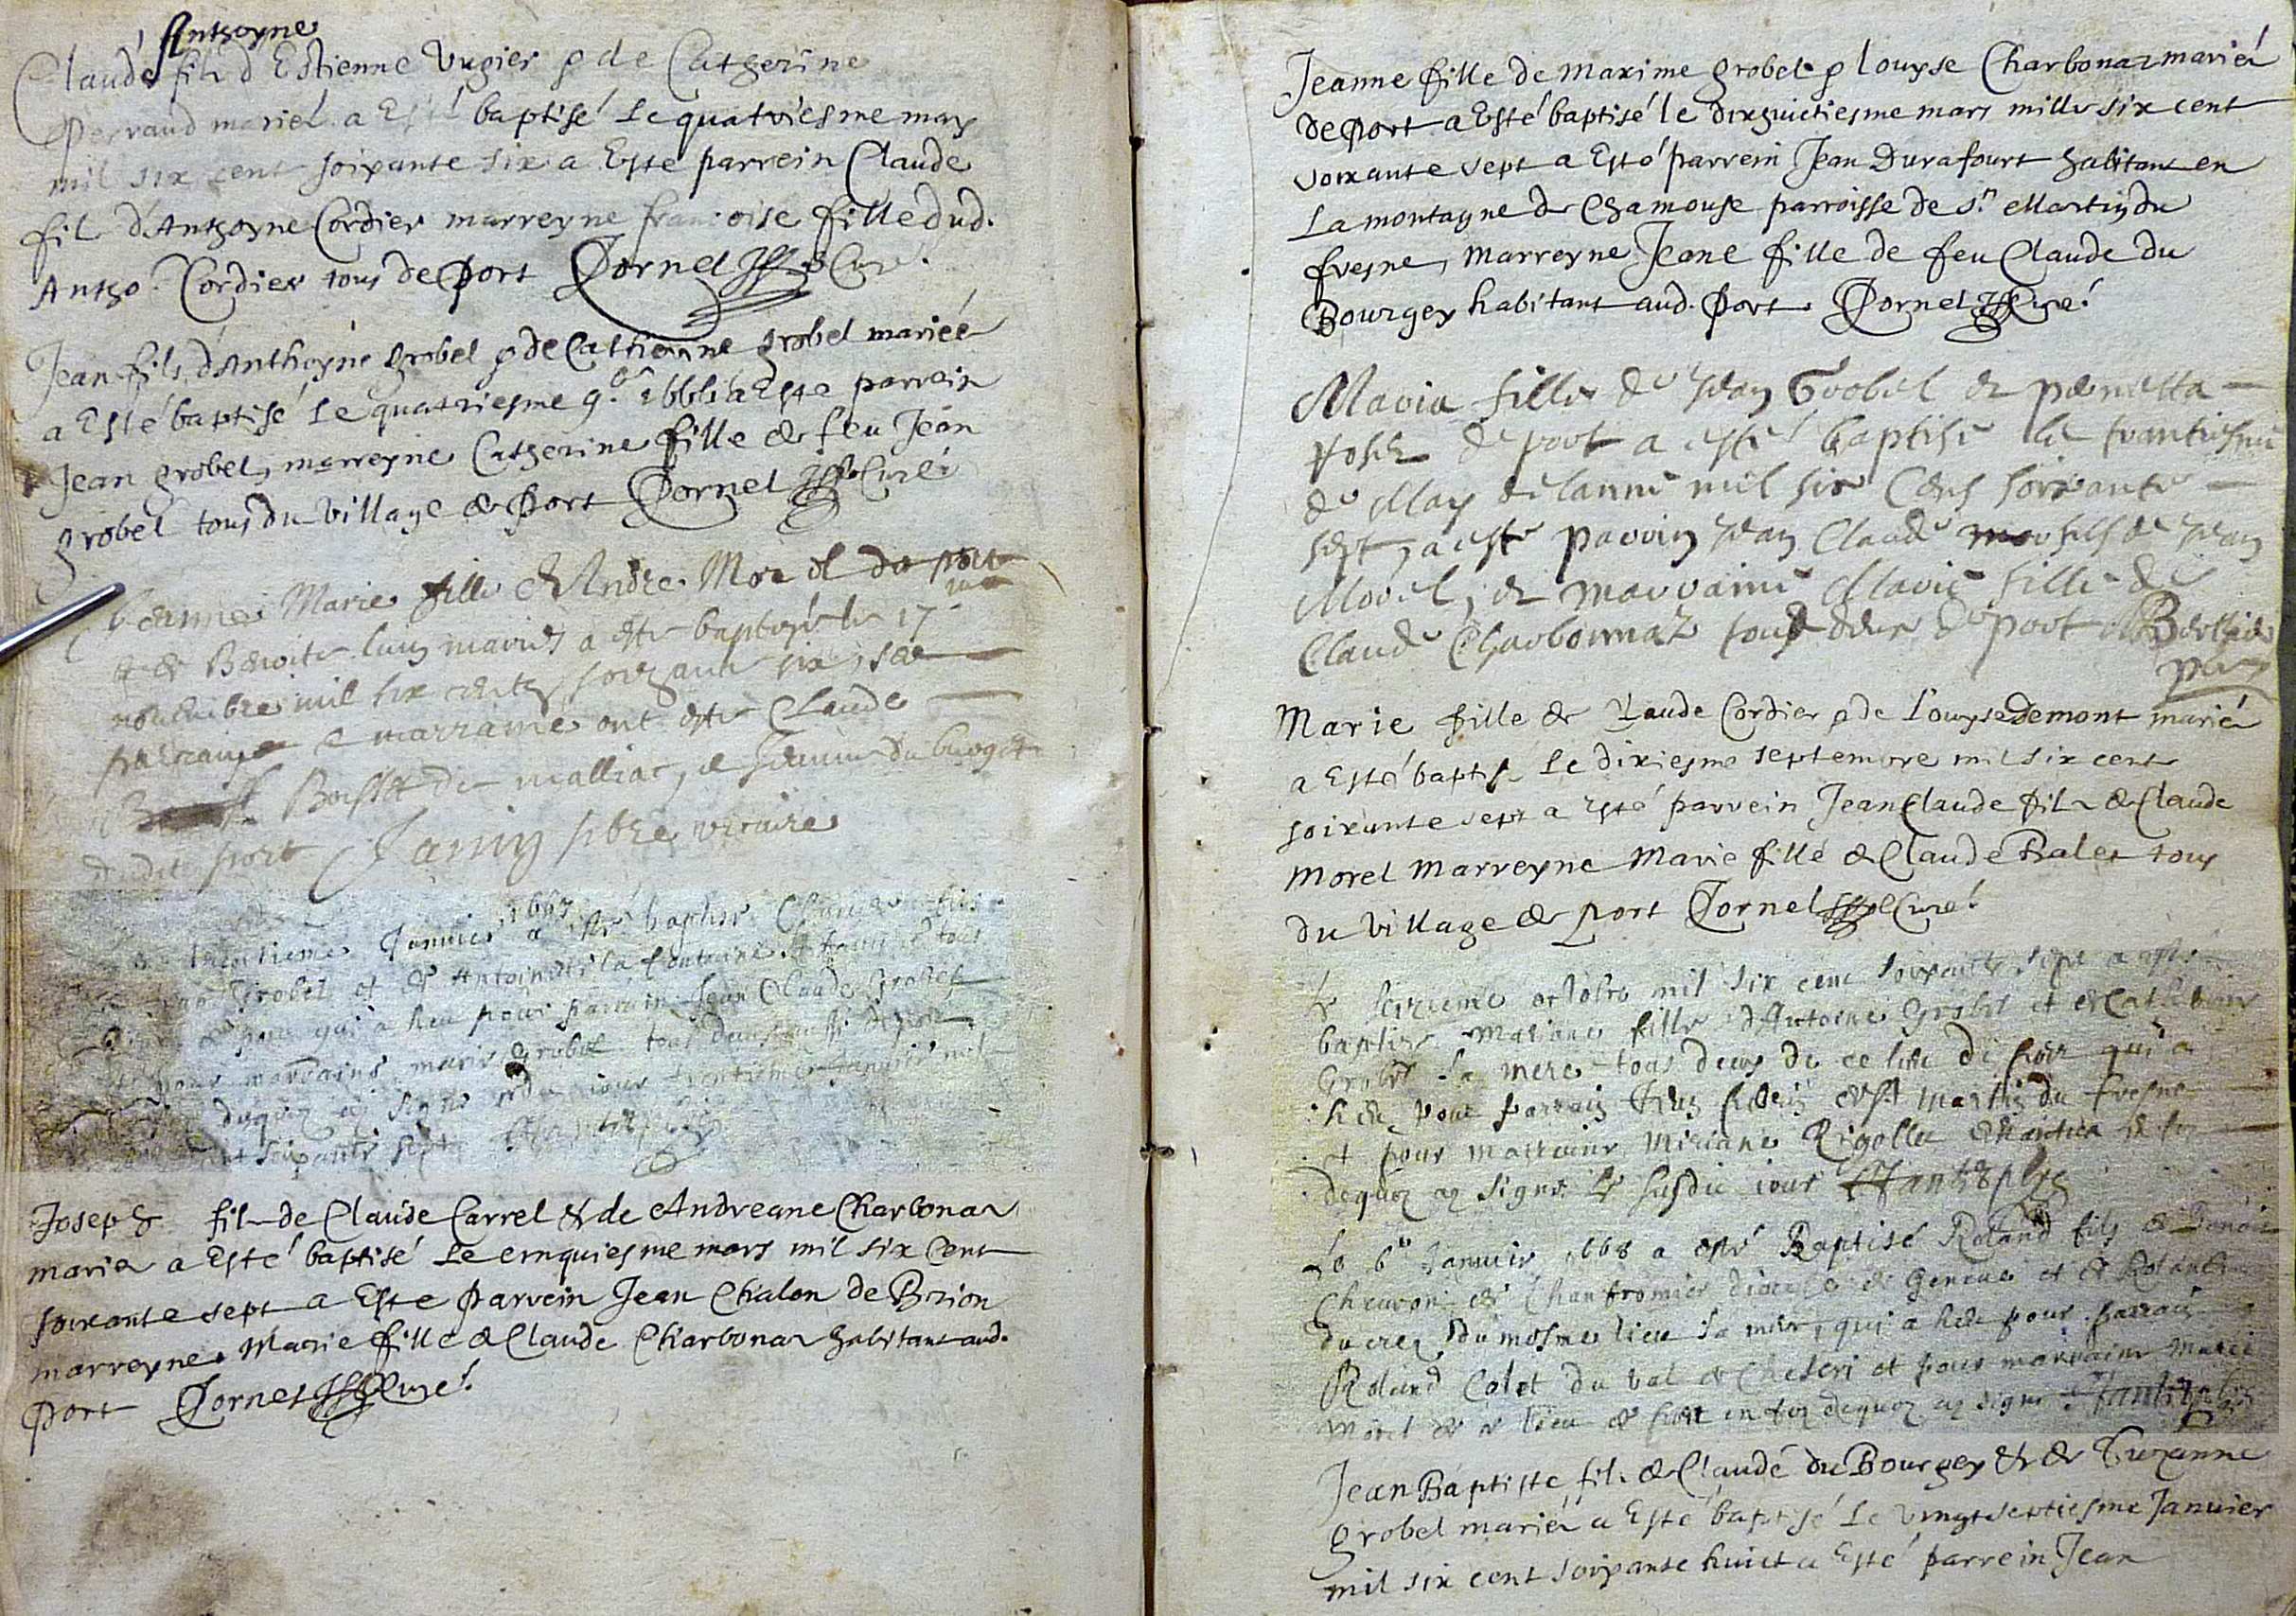 Anthoyne
Claude fils d'Estienne Vugier & de Catherine
Perraud mariés a Esté baptisé Le quatriesme may
mil six cent soixante six a Este parrein Claude
fils d'Anthoyne Cordier marreyne francoise fille dud.
Antho. Cordier tous de Port Cornel Curé.
Jean fils d'Anthoyne grobel & de Catherine grobel mariéé
a Esté baptisé Le quatriesme 9.bre 1666 a Este parrein
Jean grobel, marreyne Catherine fille de feu Jean
grobel tous du village de Port Cornel Curé
Jeanne Marie fille de Andre Morel du port
& de Benoite mariés a este baptisée le 17
novembre mil six cents soixante six, ses
parrain & marraine ont este Claude
Bosset de malliat, et Jeanne du burget
dudit port Jamin pbre vicaire
1667
trentieme Janvier a esté baptisé Charles fils
Grobel et de Antoinette la fontaine sa femme tous
qui a heu pour parrain Jean Claude Grobel
pour marraine marie Grobel tous deux aussi de port
dequoy ay signé ce dit jour trentieme Janvier mil
cent soixante sept
Joseph fils de Claude Carrel & de Andreane Charbonaz
mariez a Esté baptisé Le cinquiesme mars mil six Cent
soixante sept a Este Parrein Jean Chalon de Brion
marreyne Marie fille de Claude Charbonaz habitant aud.
Port Cornel Curé.
Jeanne fille de Maxime grobel & Louyse Charbonaz mariés
de Port a Esté baptisé le dixhuictiesme mars mille six cent
soixante sept a Esté parrein Jean Durafourt habitant en
La montagne de Chamouse parroisse de St. Martin du
fresne, Marreyne Jeane fille de feu Claude du
Bourgey habitant aud. Port Cornel Curé.
Maria fille de Jean Grobel & pernetta
de port a esté baptisé le trantiesme
de May de lanné mil six Cens soixante
sept, a este parrin Jean Claude fils de Jean
Morel, et marraine Marie fille de
Claude Charbonnaz tous deux de port
Marie fille de Claude Cordier & de Louyse Demont mariés
a Esté baptisé Le dixiesme septembre mil six cent
soixante sept a Esté parrein Jean Claude fils de Claude
Morel Marreyne Marie fille de Claude tous
du village de port Cornel Curé.
Le seizieme octobre mil six cent soixante sept a esté
baptisée Mariane fille d'Antoine Grobel et de Catherine
Grobel sa mere tous deux de ce lieu de port qui a
heu pour parrain de St martin du fresne
et pour marraine Miriane Rigollet
dequoy ay signé Le susdit jour
Le 6e Janvier 1668 a esté Baptisé Roland fils de Benoit
Chevron de Chanfromier diocese de Geneve et de Rolande
ducrez du mesme lieu sa mere, qui a heu pour parrain
Roland Colet du val de Cheseri et pour marraine Marie
Morel de ce lieu de port en foy dequoy ay signé
Jean Baptiste fils de Claude du Bourgey & de Suzanne
grobel mariés a Esté baptisé Le vingtseptiesme Janvier
mil six cent soixante huict a Esté parrein Jean